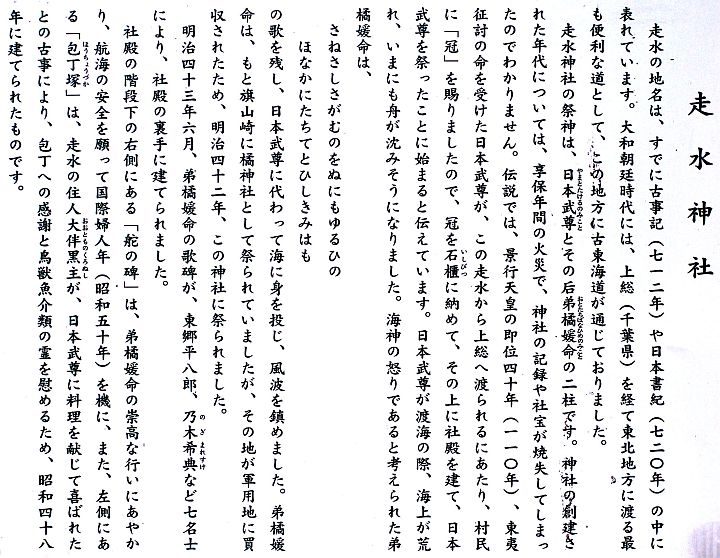 走水神社
走水の地名は、すでに古事記（七一二年）や日本書紀（七二〇年）の中に
表れています。大和朝廷時代には、上総（千葉県）を経て東北地方に渡る最
も便利な道として、この地方に古東海道が通じておりました。
走水神社の祭神は、日本武尊とその后弟橘媛命の二柱です。神社の創建さ
れた年代については、享保年間の火災で、神社の記録や社宝が焼失してしまっ
たのでわかりません。伝説では、景行天皇の即位四十年（一一〇年）、東夷
征討の命を受けた日本武尊が、この走水から上総へ渡られるにあたり、村民
に「冠」を賜りましたので、冠を石櫃に納めて、その上に社殿を建て、日本
武尊を祭ったことに始まると伝えています。日本武尊が渡海の際、海上が荒
れ、いまにも舟が沈みそうになりました。海神の怒りであると考えられた弟
橘媛命は、
さねさしさがむのをぬにもゆるひの
ほなかにたちてとひしきみはも
の歌を残し、日本武尊に代わって海に身を投じ、風波を鎮めました。弟橘媛
命は、もと旗山崎に橘神社として祭られていましたが、その地が軍用地に買
収されたため、明治四十二年、この神社に祭られました。
明治四十三年六月、弟橘媛命の歌碑が、東郷平八郎、乃木希典など七名士
により、社殿の裏手に建てられました。
社殿の階段下の右側にある「舵の碑」は、弟橘媛命の崇高な行いにあやか
り、航海の安全を願って国際婦人年（昭和五十年）を機に、また、左側にあ
る「包丁塚」は、走水の住人大伴黒主が、日本武尊に料理を献じて喜ばれた
との古事により、包丁への感謝と鳥獣魚介類の霊を慰めるため、昭和四十八
年に建てられたものです。